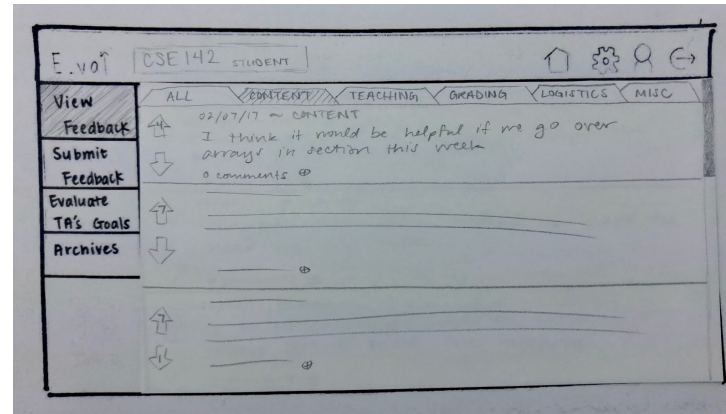 E.voî
CSE 142 STUDENT
View
Feedback
Submit
Feedback
Evaluate
TA's Goals
Archives
ALL
CONTENT
TEACHING
GRADING
LOGISTICS
MISC
4
02/07/17 ~ CONTENT
I think it would be helpful if we go over
arrays in section this week
0 comments
7
7
1